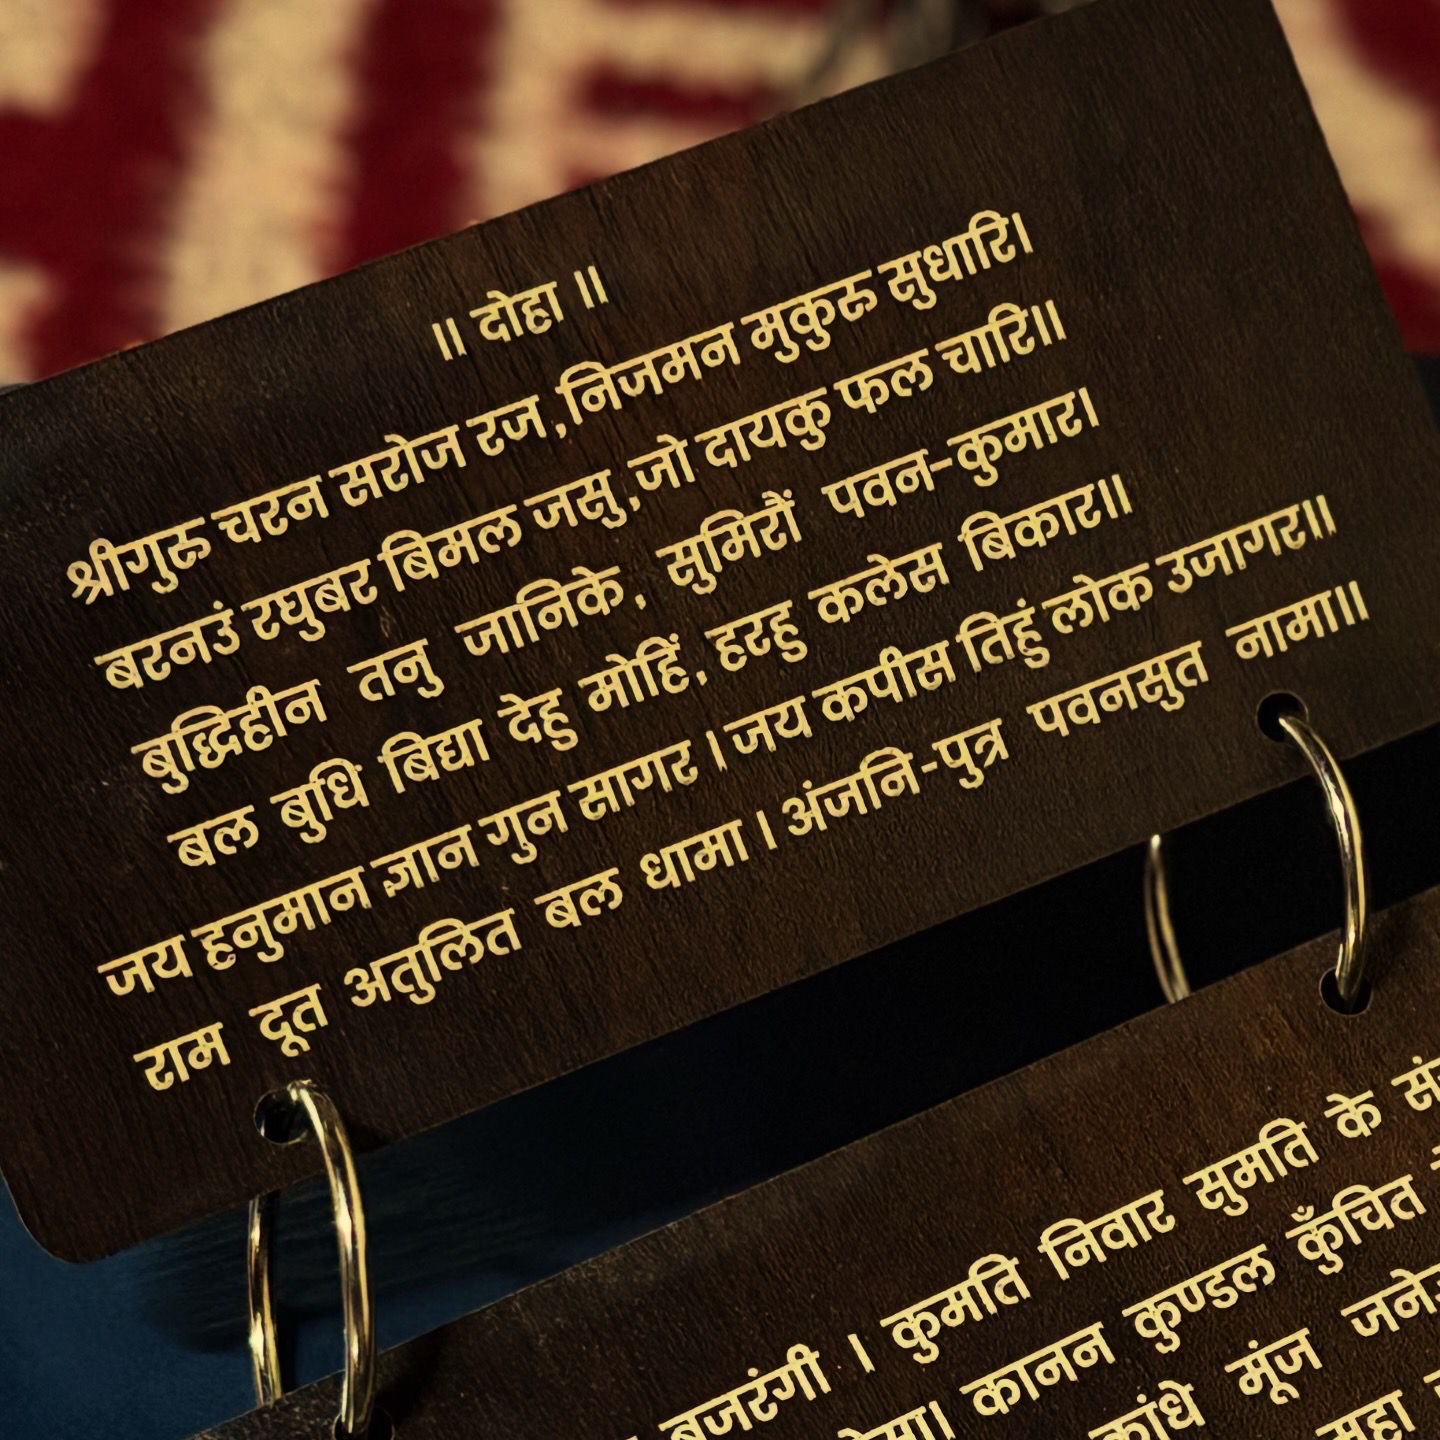 ॥ दोहा ॥
श्रीगुरु चरन सरोज रज,निजमन मुकुरु सुधारि।
बरनउं रघुबर बिमल जसु,जो दायकु फल चारि॥
बुद्धिहीन तनु जानिके, सुमिरौं पवन-कुमार।
बल बुधि बिद्या देहु मोहिं, हरहु कलेस बिकार॥
जय हनुमान ज्ञान गुन सागर । जय कपीस तिहुं लोक उजागर॥
राम दूत अतुलित बल धामा । अंजनि-पुत्र पवनसुत नामा॥
बजरंगी । कुमति निवार सुमति के
कानन कुण्डल कुँचित
कांधे मूंज